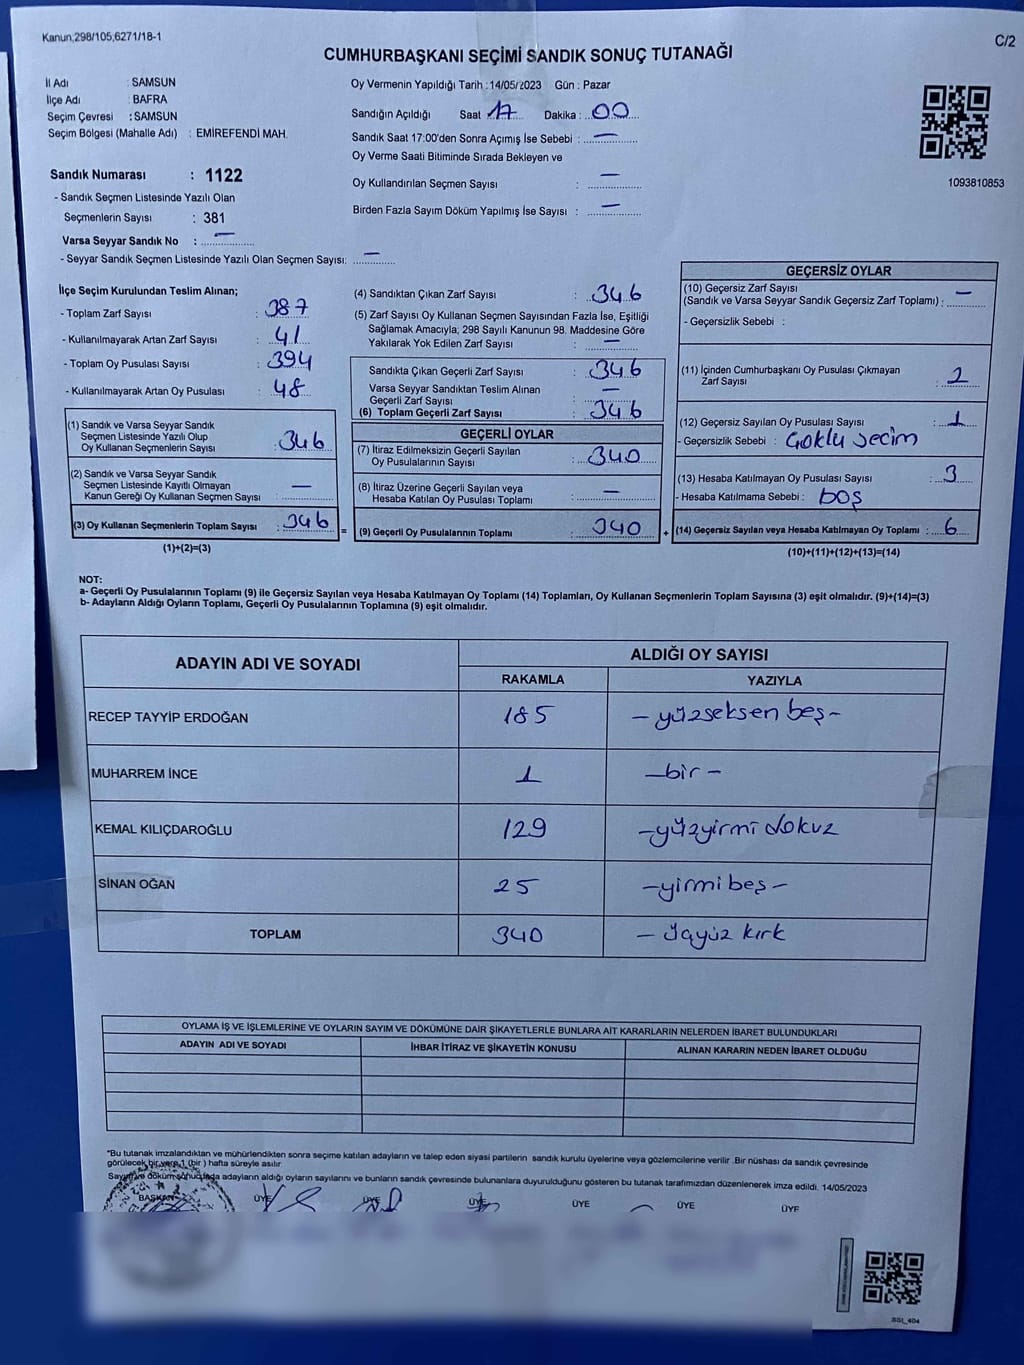 Kanun;298/105,6271/18-1
C/2
CUMHURBAŞKANI SEÇİMİ SANDIK SONUÇ TUTANAĞI
İl Adı : SAMSUN
İlçe Adı : BAFRA
Seçim Çevresi : SAMSUN
Seçim Bölgesi (Mahalle Adı) : EMİREFENDİ MAH.
Sandık Numarası : 1122
- Sandık Seçmen Listesinde Yazılı Olan
Seçmenlerin Sayısı : 381
Varsa Seyyar Sandık No : —
- Seyyar Sandık Seçmen Listesinde Yazılı Olan Seçmen Sayısı: —
Oy Vermenin Yapıldığı Tarih :14/05/2023 Gün : Pazar
Sandığın Açıldığı Saat 17 Dakika : 00
Sandık Saat 17:00'den Sonra Açımış İse Sebebi : —
Oy Verme Saati Bitiminde Sırada Bekleyen ve
Oy Kullandırılan Seçmen Sayısı : —
Birden Fazla Sayım Döküm Yapılmış İse Sayısı : —
1093810853
İlçe Seçim Kurulundan Teslim Alınan;
- Toplam Zarf Sayısı : 387
- Kullanılmayarak Artan Zarf Sayısı : 41
- Toplam Oy Pusulası Sayısı : 394
- Kullanılmayarak Artan Oy Pusulası : 48
(1) Sandık ve Varsa Seyyar Sandık
Seçmen Listesinde Yazılı Olup
Oy Kullanan Seçmenlerin Sayısı : 346
(2) Sandık ve Varsa Seyyar Sandık
Seçmen Listesinde Kayıtlı Olmayan
Kanun Gereği Oy Kullanan Seçmen Sayısı : —
(3) Oy Kullanan Seçmenlerin Toplam Sayısı : 346
(1)+(2)=(3)
(4) Sandıktan Çıkan Zarf Sayısı : 346
(5) Zarf Sayısı Oy Kullanan Seçmen Sayısından Fazla İse, Eşitliği
Sağlamak Amacıyla; 298 Sayılı Kanunun 98. Maddesine Göre
Yakılarak Yok Edilen Zarf Sayısı : —
Sandıkta Çıkan Geçerli Zarf Sayısı : 346
Varsa Seyyar Sandıktan Teslim Alınan
Geçerli Zarf Sayısı : —
(6) Toplam Geçerli Zarf Sayısı : 346
GEÇERLİ OYLAR
(7) İtiraz Edilmeksizin Geçerli Sayılan
Oy Pusulalarının Sayısı : 340
(8) İtiraz Üzerine Geçerli Sayılan veya
Hesaba Katılan Oy Pusulası Toplamı : —
= (9) Geçerli Oy Pusulalarının Toplamı : 340 +
GEÇERSİZ OYLAR
(10) Geçersiz Zarf Sayısı
(Sandık ve Varsa Seyyar Sandık Geçersiz Zarf Toplamı) : —
- Geçersizlik Sebebi :
(11) İçinden Cumhurbaşkanı Oy Pusulası Çıkmayan
Zarf Sayısı : 2
(12) Geçersiz Sayılan Oy Pusulası Sayısı : 1
- Geçersizlik Sebebi : Çoklu Seçim
(13) Hesaba Katılmayan Oy Pusulası Sayısı : 3
- Hesaba Katılmama Sebebi : boş
(14) Geçersiz Sayılan veya Hesaba Katılmayan Oy Toplamı : 6
(10)+(11)+(12)+(13)=(14)
NOT:
a- Geçerli Oy Pusulalarının Toplamı (9) ile Geçersiz Sayılan veya Hesaba Katılmayan Oy Toplamı (14) Toplamları, Oy Kullanan Seçmenlerin Toplam Sayısına (3) eşit olmalıdır. (9)+(14)=(3)
b- Adayların Aldığı Oyların Toplamı, Geçerli Oy Pusulalarının Toplamına (9) eşit olmalıdır.
ADAYIN ADI VE SOYADI
ALDIĞI OY SAYISI
RAKAMLA YAZIYLA
RECEP TAYYİP ERDOĞAN 185 - yüzseksen beş -
MUHARREM İNCE 1 - bir -
KEMAL KILIÇDAROĞLU 129 - yüzyirmi dokuz
SİNAN OĞAN 25 - yirmi beş -
TOPLAM 340 - üçyüz kırk
OYLAMA İŞ VE İŞLEMLERİNE VE OYLARIN SAYIM VE DÖKÜMÜNE DAİR ŞİKAYETLERLE BUNLARA AİT KARARLARIN NELERDEN İBARET BULUNDUKLARI
ADAYIN ADI VE SOYADI İHBAR İTİRAZ VE ŞİKAYETİN KONUSU ALINAN KARARIN NEDEN İBARET OLDUĞU
"Bu tutanak imzalandıktan ve mühürlendikten sonra seçime katılan adayların ve talep eden siyasi partilerin sandık kurulu üyelerine veya gözlemcilerine verilir .Bir nüshası da sandık çevresinde
görülecek bir yere 1 (bir ) hafta süreyle asılır
Sayım ve döküm sonucunda adayların aldığı oyların sayılarını ve bunların sandık çevresinde bulunanlara duyurulduğunu gösteren bu tutanak tarafımızdan düzenlenerek imza edildi. 14/05/2023
BAŞKAN ÜYE ÜYE ÜYE ÜYE ÜYE ÜYE
SSt_404